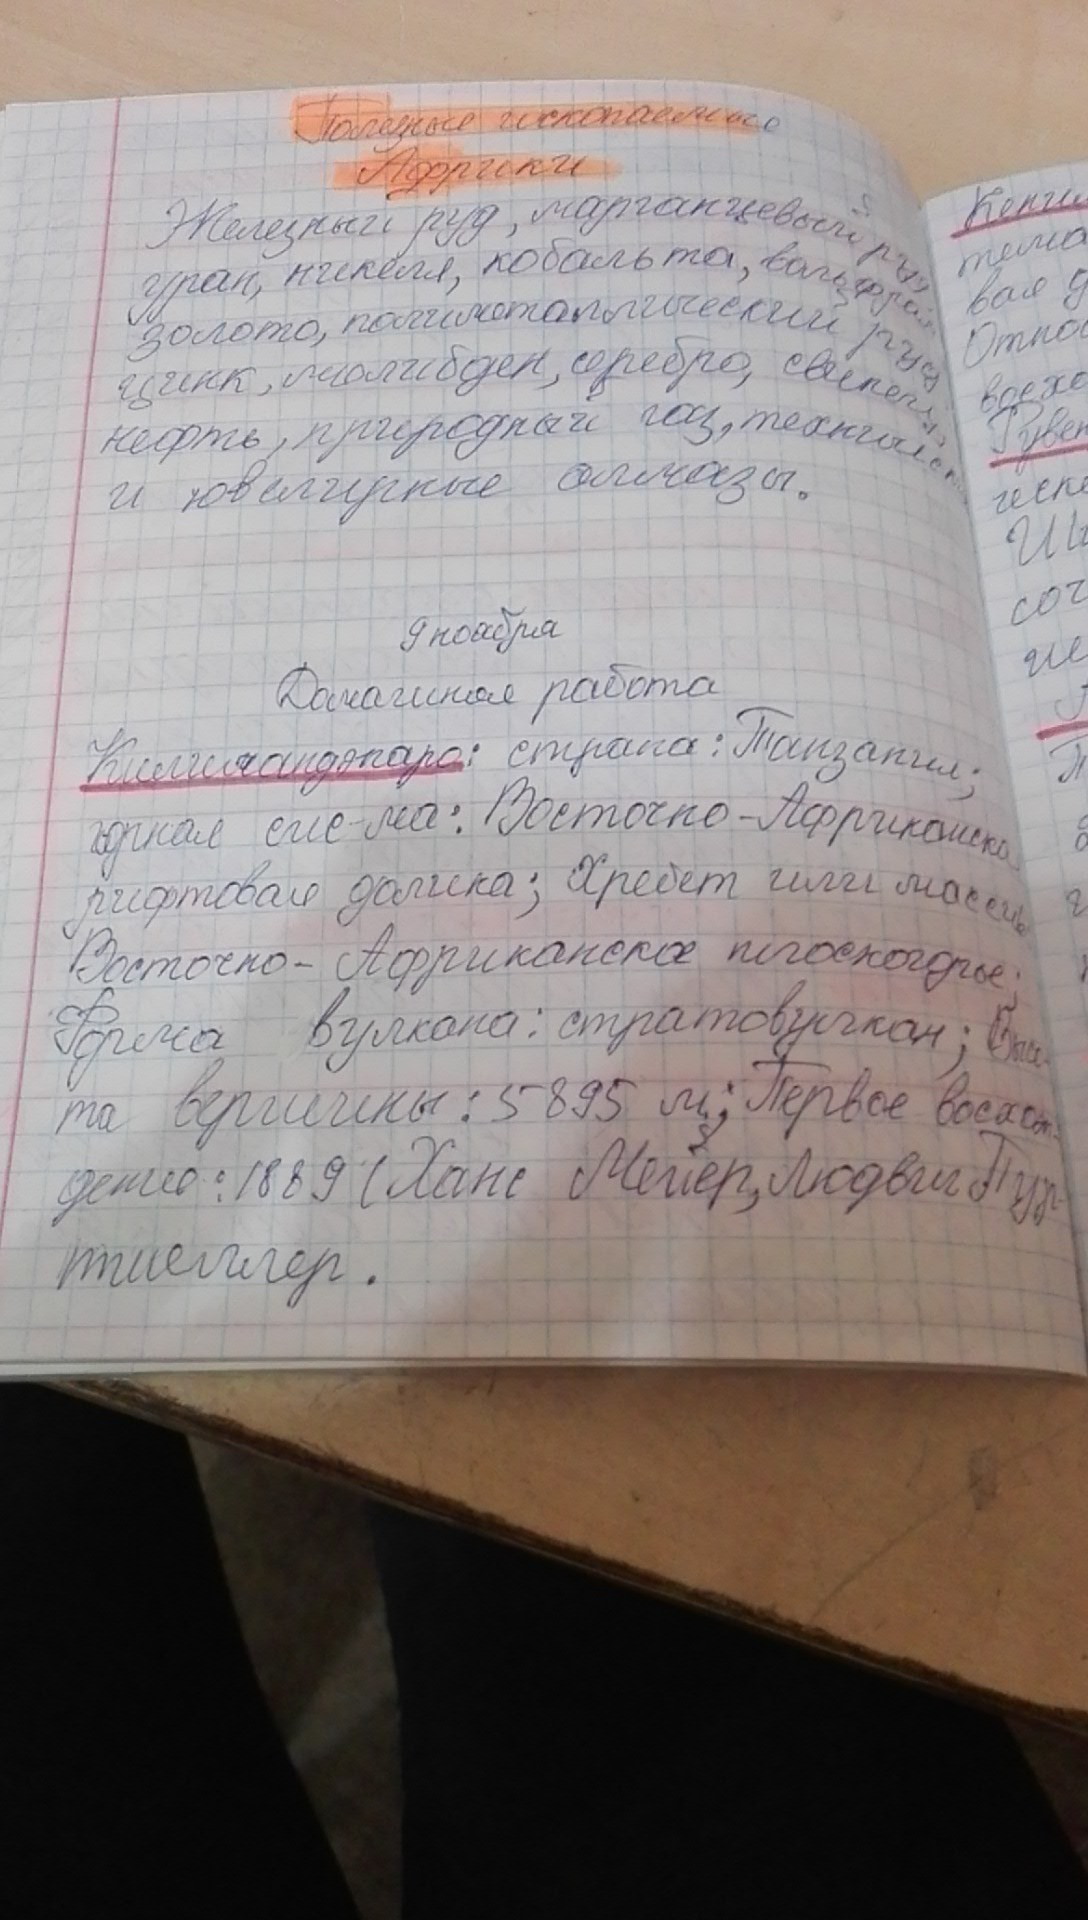 Полезные ископаемые
Африки
Железный руд, марганцевый руд
уран, никеля, кобальта, вольфрам
золото, полиметаллический руд
цинк, молибден, серебро,
нефть, природный газ,
и ювелирные алмазы.
9 ноября
Домашняя работа
Килиманджаро: страна: Танзания;
горная сис-ма: Восточно-Африканская
рифтовая долина; Хребет или массив
Восточно-Африканское плоскогорье;
Форма вулкана: стратовулкан; Высо-
та вершины: 5895 м; Первое восхож-
дение: 1889 (Ханс Мейер, Людвиг Пур-
тшеллер.
Кения
вая
Относ
восхо
Рувен
ческ
соч